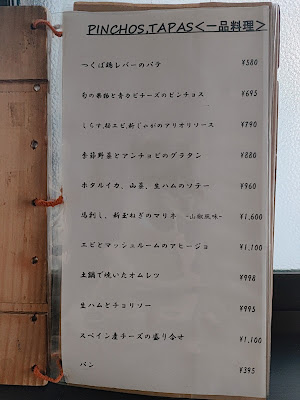 PINCHOS,TAPAS<一品料理>
つくば鶏レバーのパテ ¥580
旬の果物と青カビチーズのピンチョス ¥695
しらす,桜エビ,新じゃがのアリオリソース ¥790
季節野菜とアンチョビのグラタン ¥880
ホタルイカ、山菜、生ハムのソテー ¥960
馬刺し、新玉ねぎのマリネ -山椒風味- ¥1,600
エビとマッシュルームのアヒージョ ¥1,100
土鍋で焼いたオムレツ ¥998
生ハムとチョリソー ¥995
スペイン産チーズの盛り合せ ¥1,100
パン ¥395